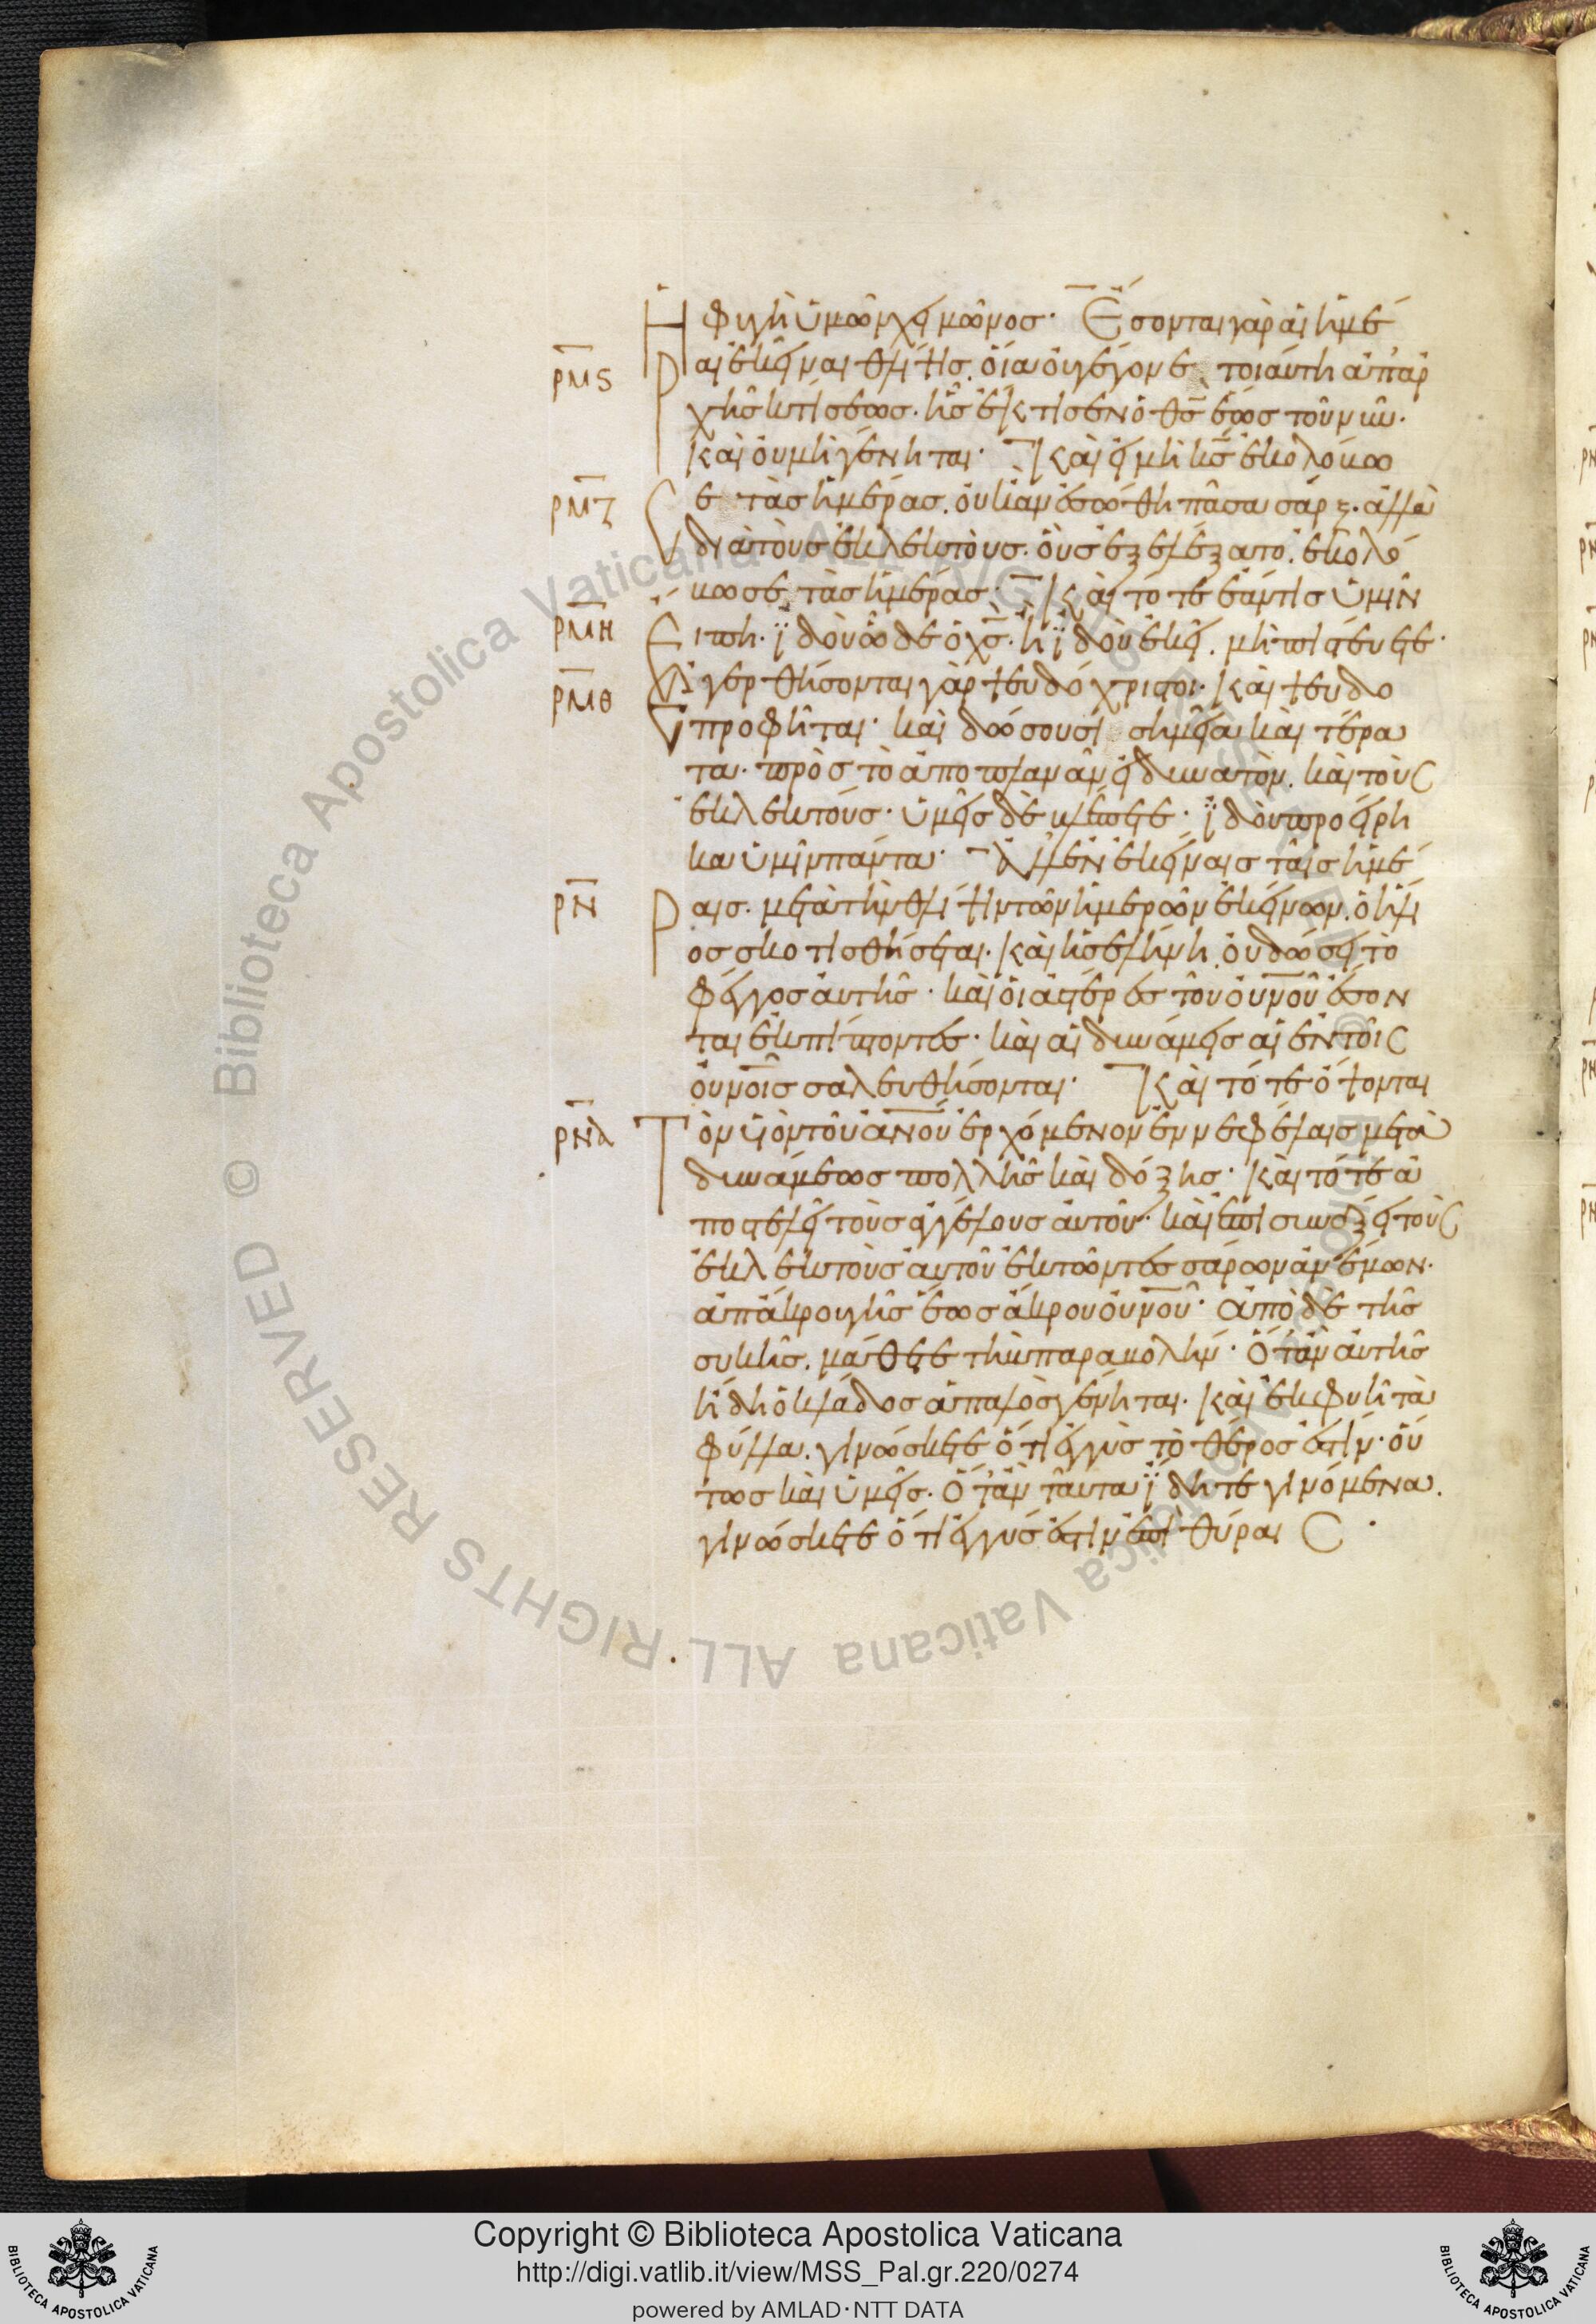 Ἡ φυγὴ ὑμῶν χειμῶνος· Ἔσονται γὰρ αἱ ἡμέ
ρμϛ ραι ἐκεῖναι θλίψις, οἵα οὐ γέγονε τοιαύτη ἀπ' ἀρ
χῆς κτίσεως· ἧς ἔκτισεν ὁ θς ἕως τοῦ νῦν·
καὶ οὐ μὴ γένηται· Καὶ εἰ μὴ κς ἐκολόβω
ρμζ σε τὰς ἡμέρας, οὐκ ἂν ἐσώθη πᾶσα σάρξ· ἀλλὰ
διὰ τοὺς ἐκλεκτοὺς· οὓς ἐξελέξατο, ἐκολό
βωσε τὰς ἡμέρας· Καὶ τότε ἐάν τις ὑμῖν
ρμη εἴπη· ϊδοὺ ὧδε ὁ χς· ἢ ϊδοὺ ἐκεῖ, μὴ πιστεύετε·
ρμθ Ἐγερθήσονται γὰρ ψευδόχριστοι· καὶ ψευδο
προφῆται· καὶ δώσουσι σημεῖα καὶ τέρα
τα· πρὸς τὸ ἀποπλανᾶν εἰ δυνατὸν, καὶ τοὺς
ἐκλεκτούς· ὑμεῖς δὲ βλέπετε· ϊδοὺ προείρη
κα ὑμῖν πάντα· Ἀλλ' ἐν ἐκείναις ταῖς ἡμέ
ρν ραις· μετὰ τὴν θλίψιν τῶν ἡμερῶν ἐκείνων, ὁ ἥλι
ος σκοτισθήσεται· καὶ ἡ σελήνη οὐ δώσει τὸ
φέγγος αὐτῆς· καὶ οἱ ἀστέρες τοῦ οὐνοῦ ἔσον
ται ἐκπίπτοντες· καὶ αἱ δυνάμεις αἱ ἐν τοῖς
οὐνοῖς σαλευθήσονται· Καὶ τότε ὄψονται
ρνα Τὸν υἱὸν τοῦ ἀνου ἐρχόμενον ἐν νεφέλαις μετὰ
δυνάμεως πολλῆς καὶ δόξης· καὶ τότε ἀ
ποστελεῖ τοὺς ἀγγέλους αὐτοῦ· καὶ ἐπισυνάξει τοὺς
ἐκλεκτοὺς αὐτοῦ ἐκ τῶν τεσσάρων ἀνέμων·
ἀπ' ἄκρου γῆς ἕως ἄκρου οὐνοῦ· ἀπὸ δὲ τῆς
συκῆς, μάθετε τὴν παραβολήν· Ὅταν αὐτῆς
ἤδη ὁ κλάδος ἁπαλὸς γένηται· καὶ ἐκφυῆ τὰ
φύλλα, γινώσκετε ὅτι ἐγγὺς τὸ θέρος ἐστίν· οὕ
τως καὶ ὑμεῖς· Ὅταν ταῦτα ϊδητε γινόμενα,
γινώσκετε ὅτι ἐγγύς ἐστιν ἐπὶ θύραις·
Copyright © Biblioteca Apostolica Vaticana
http://digi.vatlib.it/view/MSS_Pal.gr.220/0274
powered by AMLAD·NTT DATA